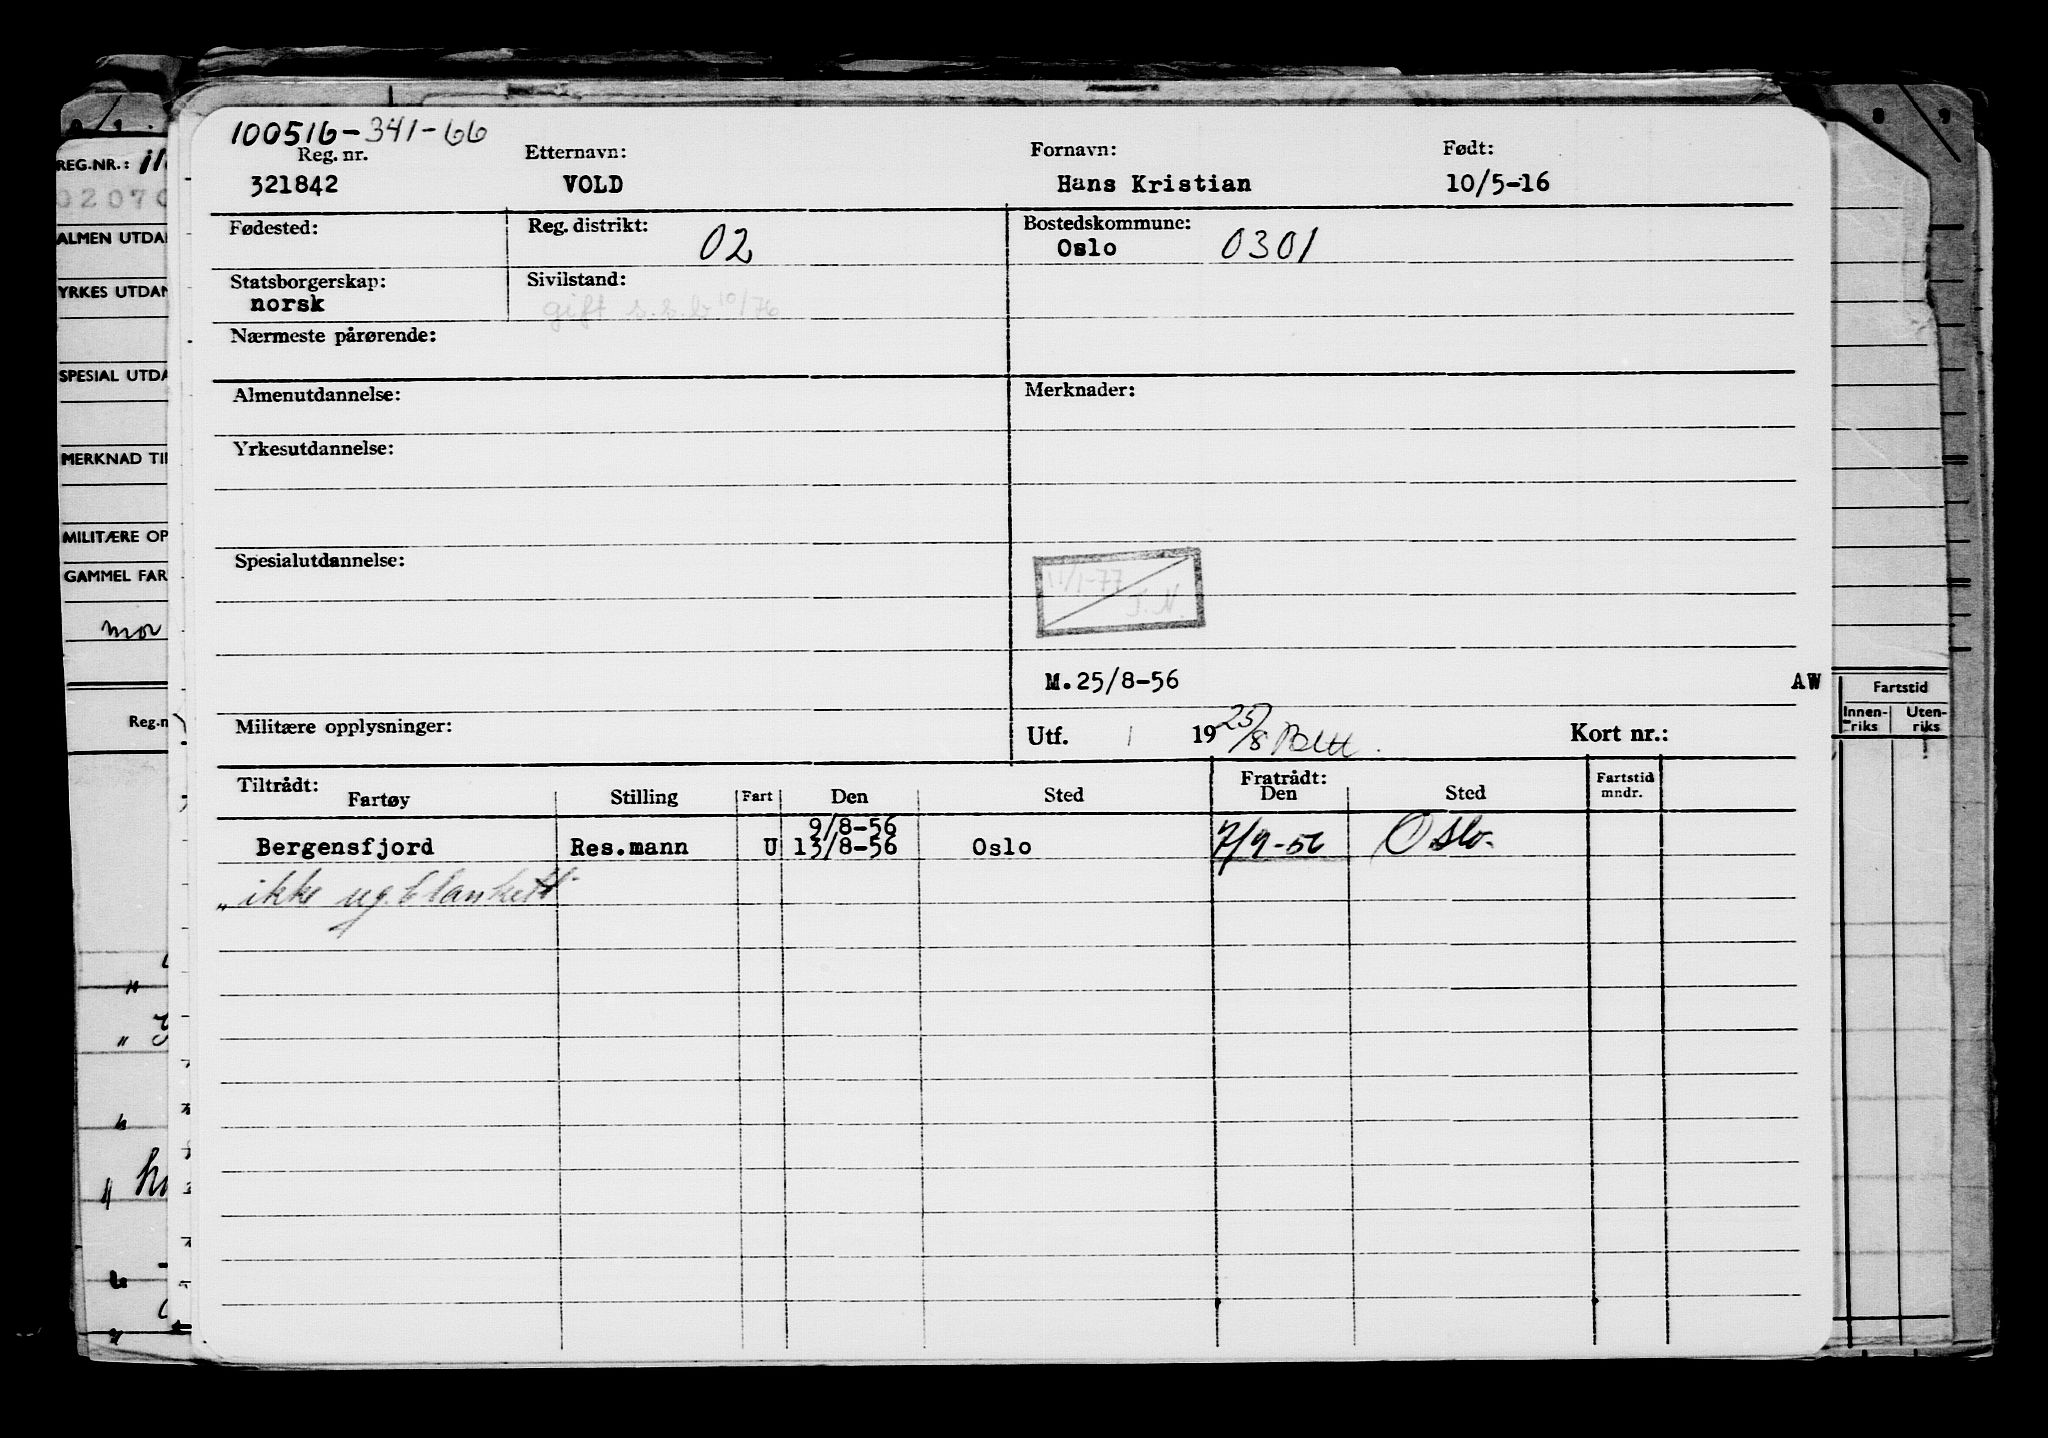 100516-341-66
Reg. nr. Etternavn: Fornavn: Født:
321842 VOLD Hans Kristian 10/5-16
Fødested: Reg. distrikt: 02 Bostedskommune: Oslo 0301
Statsborgerskap: norsk Sivilstand: gift s.s.b 10/76
Nærmeste pårørende:
Almenutdannelse: Merknader:
Yrkesutdannelse:
Spesialutdannelse:
11/1-77
J.N.
M.25/8-56 AW
Militære opplysninger: Utf. 19 25/8 Kort nr.:
Tiltrådt: Fratrådt: Fartstid
Fartøy Stilling Fart Den Sted Den Sted mndr.
9/8-56
Bergensfjord Res.mann U 13/8-56 Oslo 7/9-56 Oslo.
" ikke ug. blankett
REG.NR.:
ALMEN UTDA
YRKES UTDAN
SPESIAL UTDA
MERKNAD TI
MILITÆRE OP
GAMMEL FAR
mor
Reg.n
Fartstid
Innen-riks Uten-riks